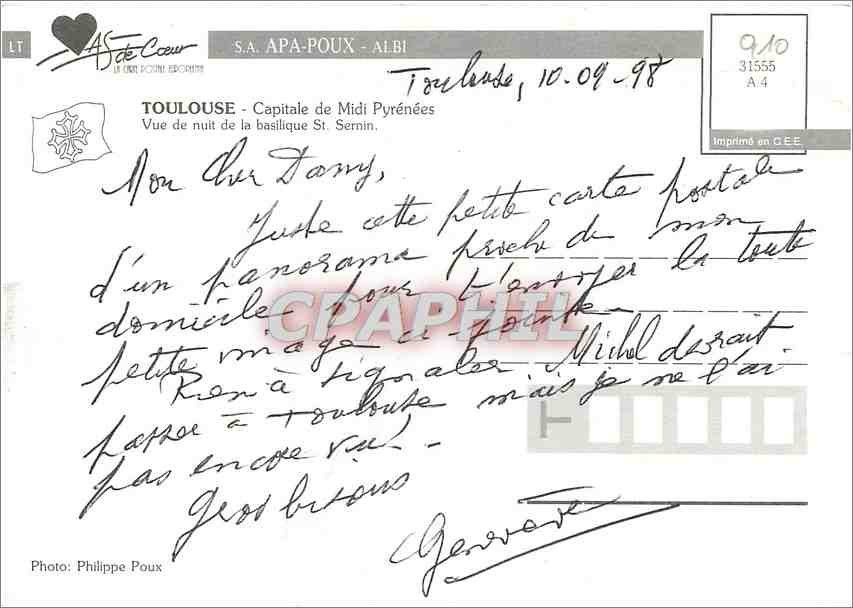 LT
As de Coeur
LA CARTE POSTALE EUROPEENNE
S.A. APA-POUX - ALBI
910
31555
A 4
Imprimé en C.E.E.
Toulouse, 10-09-98
TOULOUSE - Capitale de Midi Pyrénées
Vue de nuit de la basilique St. Sernin.
Mon Cher Dany,
Juste cette petite carte postale
d'un panorama proche de mon
domicile pour t'envoyer la toute
petite image ci-jointe -
CPAPHIL
Rien à signaler Michel devrait
passer à Toulouse mais je ne l'ai
pas encore vu! -
Gros bisous
Geneviève
Photo: Philippe Poux